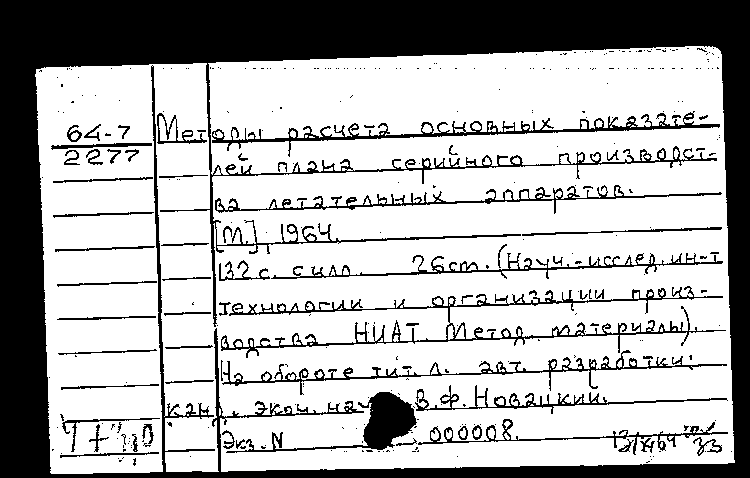 64-7
2277
Методы расчета основных показате-
лей плана серийного производст-
ва летательных аппаратов.
[М.], 1964.
132 с. с илл. 26 см. (Науч.-исслед. ин-т
технологии и организации произ-
водства НИАТ. Метод. материалы).
На обороте тит. л. авт. разработки:
канд. экон. наук В.Ф. Новацкий.
Экз. N 000008.